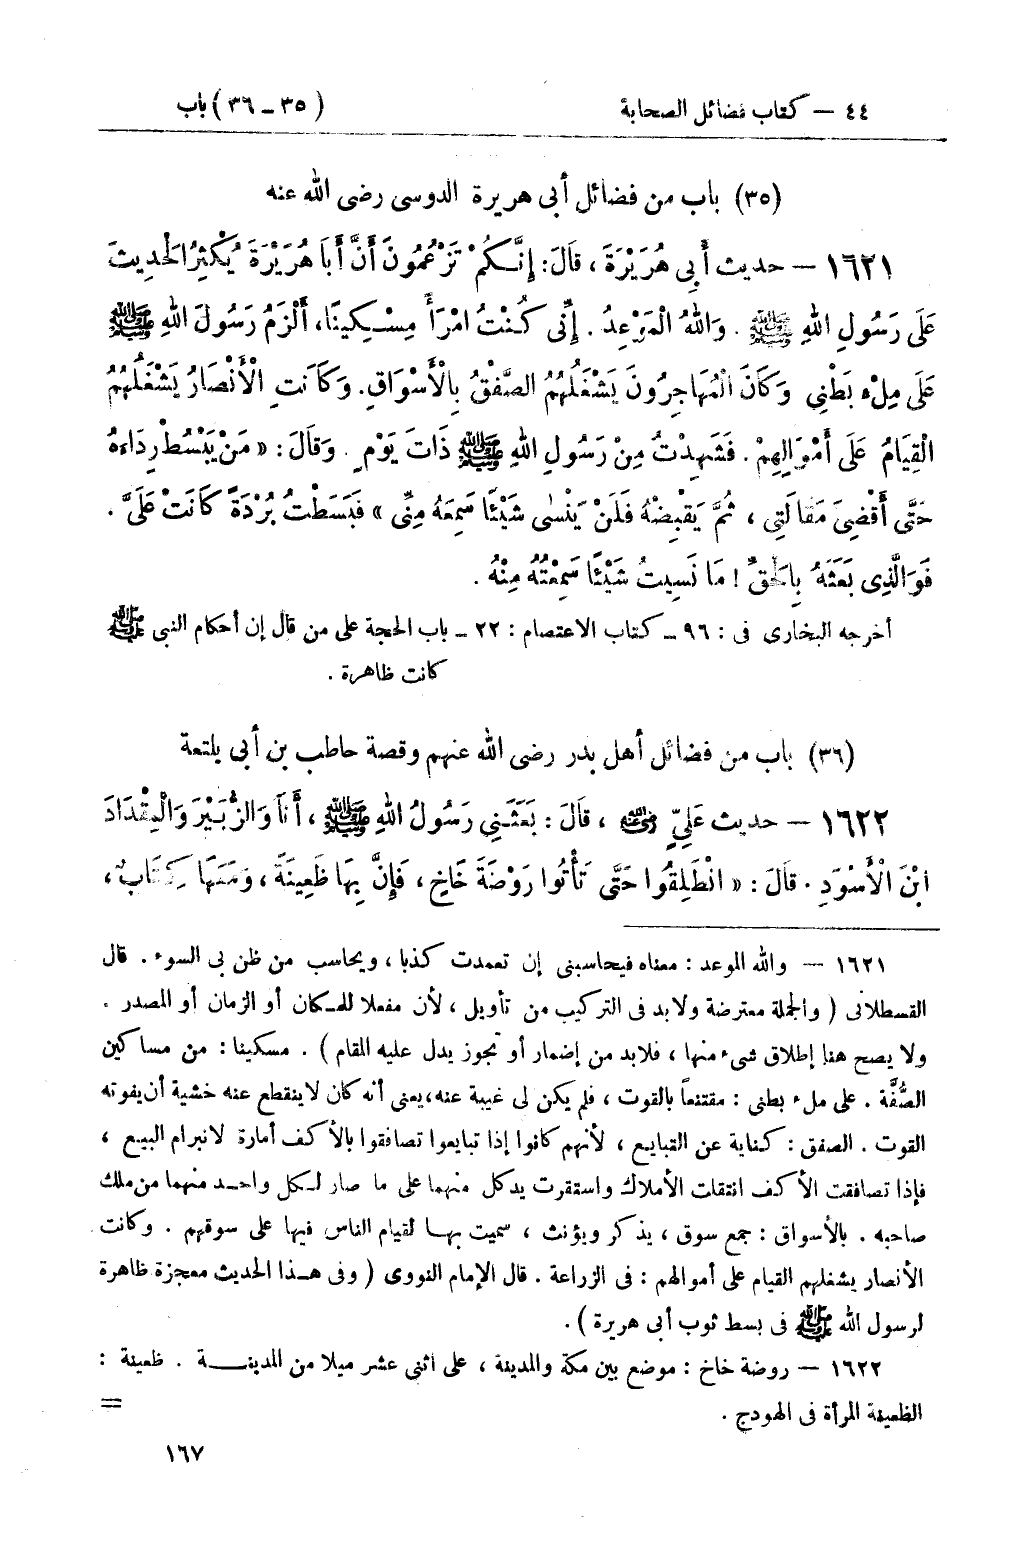 ٤٤ – كتاب فضائل الصحابة (٣٥ – ٣٦) باب
(٣٥) باب من فضائل أبى هريرة الدوسى رضى الله عنه
١٦٢١ – حديث أَبِي هُرَيْرَةَ ، قَالَ: إِنَّكُمْ تَزْعُمُونَ أَنَّ أَبَا هُرَيْرَةَ يُكْثِرُ الْحَدِيثَ
عَلَى رَسُولِ اللهِ ﷺ . وَاللهُ الْمَوْعِدُ . إِنِّي كُنْتُ امْرَأً مِسْكِينًا، أَلْزَمُ رَسُولَ اللهِ ﷺ
عَلَى مِلْءِ بَطْنِي وَكَانَ الْمُهَاجِرُونَ يَشْغَلُهُمُ الصَّفْقُ بِالْأَسْوَاقِ. وَكَانَتِ الْأَنْصَارُ يَشْغَلُهُمُ
الْقِيَامُ عَلَى أَمْوَالِهِمْ . فَشَهِدْتُ مِنْ رَسُولِ اللهِ ﷺ ذَاتَ يَوْمٍ . وَقَالَ: « مَنْ يَبْسُطْ رِدَاءَهُ
حَتَّى أَقْضِيَ مَقَالَتِي ، ثُمَّ يَقْبِضْهُ فَلَنْ يَنْسٰى شَيْئًا سَمِعَهُ مِنِّي » فَبَسَطْتُ بُرْدَةً كَانَتْ عَلَيَّ .
فَوَالَّذِي بَعَثَهُ بِالْحَقِّ ! مَا نَسِيتُ شَيْئًا سَمِعْتُهُ مِنْهُ .
أخرجه البخارى فى : ٩٦ – كتاب الاعتصام : ٢٢ – باب الحجة على من قال إن أحكام النبى ﷺ
كانت ظاهرة .
(٣٦) باب من فضائل أهل بدر رضى الله عنهم وقصة حاطب بن أبى بلتعة
١٦٢٢ – حديث عَلِيٍّ رضي الله عنه ، قَالَ : بَعَثَنِي رَسُولُ اللهِ ﷺ ، أَنَا وَالزُّبَيْرَ وَالْمِقْدَادَ
ابْنَ الْأَسْوَدِ . قَالَ : « انْطَلِقُوا حَتَّى تَأْتُوا رَوْضَةَ خَاخٍ ، فَإِنَّ بِهَا ظَعِينَةً ، وَمَعَهَا كِتَابٌ ،
١٦٢١ – والله الموعد : معناه فيحاسبنى إن تعمدت كذبا ، ويحاسب من ظن بى السوء . قال
القسطلانى ( والجملة معترضة ولابد فى التركيب من تأويل ، لأن مفعلا للمكان أو الزمان أو المصدر .
ولا يصح هنا إطلاق شىء منها ، فلابد من إضمار أو تجوز يدل عليه المقام ) . مسكينا : من مساكين
الصُّفَّة . على ملء بطنى : مقتنعاً بالقوت ، فلم يكن لى غيبة عنه، يعنى أنه كان لا ينقطع عنه خشية أن يفوته
القوت . الصفق : كناية عن التبايع ، لأنهم كانوا إذا تبايعوا تصافقوا بالأكف أمارة لانبرام البيع ،
فإذا تصافقت الأكف انتقلت الأملاك واستقرت يد كل منهما على ما صار لكل واحد منهما من ملك
صاحبه . بالأسواق : جمع سوق ، يذكر ويؤنث ، سميت بها لقيام الناس فيها على سوقهم . وكانت
الأنصار يشغلهم القيام على أموالهم : فى الزراعة . قال الإمام النووى ( وفى هذا الحديث معجزة ظاهرة
لرسول الله ﷺ فى بسط ثوب أبى هريرة ) .
١٦٢٢ – روضة خاخ : موضع بين مكة والمدينة ، على اثنى عشر ميلا من المدينة . ظعينة :
الظعينة المرأة فى الهودج . =
١٦٧